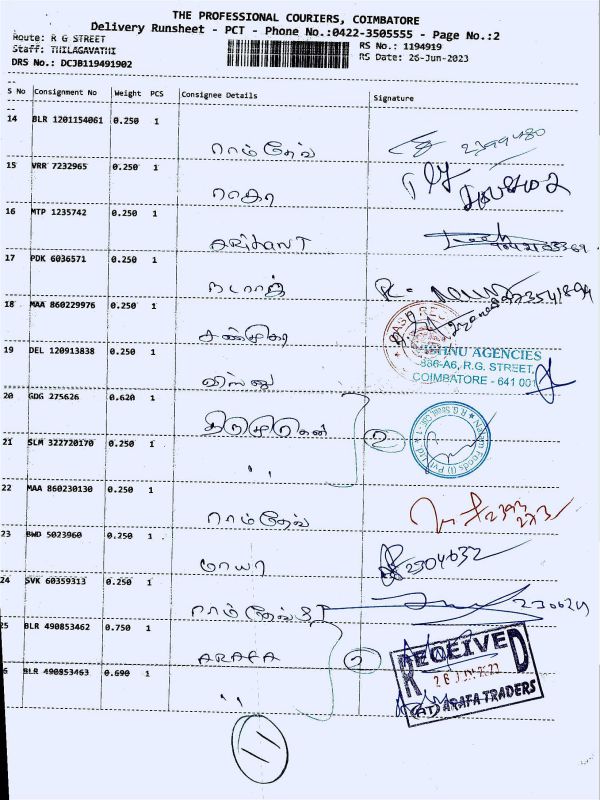 THE PROFESSIONAL COURIERS, COIMBATORE
Delivery Runsheet - PCT - Phone No.:0422-3505555 - Page No.:2
Route: R G STREET
RS No.: 1194919
Staff: THILAGAVATHI
RS Date: 26-Jun-2023
DRS No.: DCJB119491902
S No Consignment No Weight PCS Consignee Details Signature
14 BLR 1201154061 0.250 1
ராம்தேவ் 2399480
15 VRR 7232965 0.250 1
ராதா
16 MTP 1235742 0.250 1
ARIHANT
17 PDK 6036571 0.250 1
நடராஜ்
18 MAA 860229976 0.250 1
சண்முகா
19 DEL 120913838 0.250 1
VISHNU AGENCIES
886-A6, R.G. STREET,
COIMBATORE - 641 001
விஸ்ணு
20 GDG 275626 0.620 1
திருமுருகன்
2
21 SLM 322720170 0.250 1
''
22 MAA 860230130 0.250 1
ராம்தேவ்
23 BWD 5023960 0.250 1
மாயா 2304632
24 SVK 60359313 0.250 1
ராம்தேவ்
25 BLR 490853462 0.750 1
ARAFA
2
RECEIVED
6 BLR 490853463 0.690 1
''
ARAFA TRADERS
11